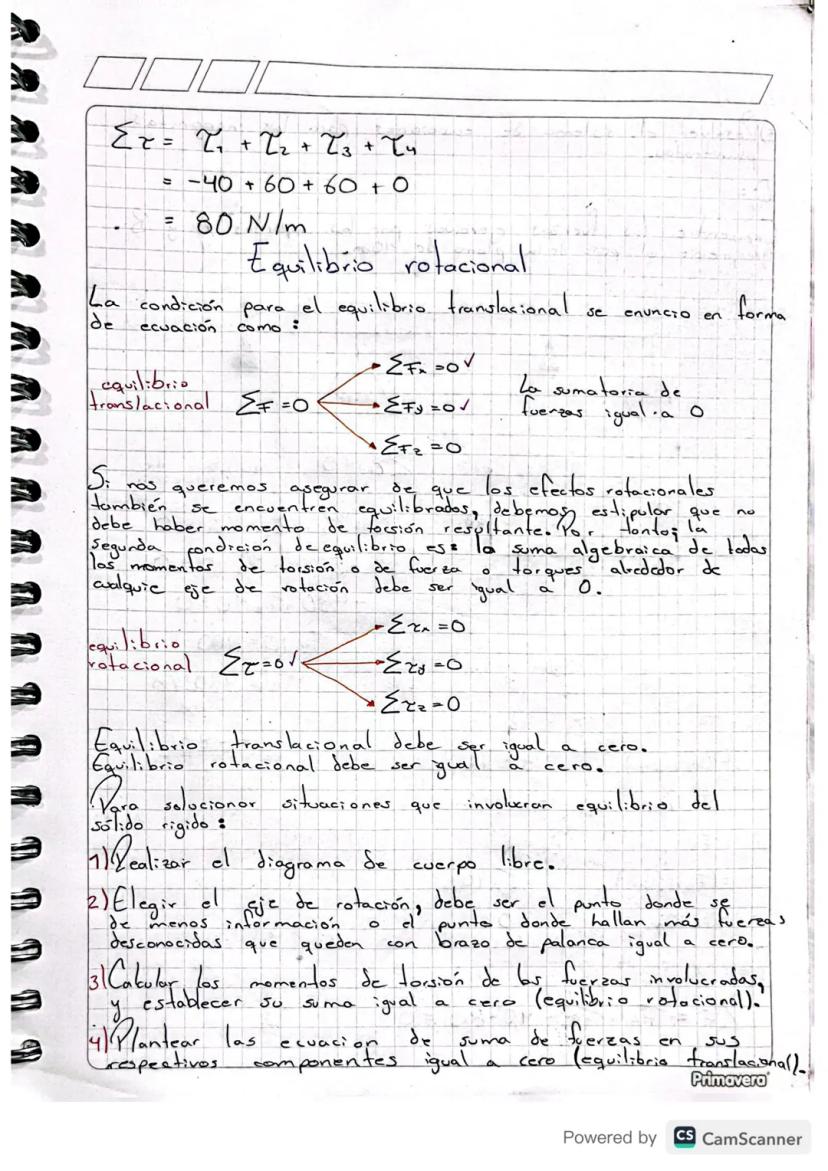 Στ = τ₁ + τ₂ + τ₃ + τ₄
= -40 + 60 + 60 + 0
= 80 N/m
Equilibrio rotacional
La condición para el equilibrio translasional se enuncio en forma
de ecuación como:
equilibrio
translacional
ΣF = 0
ΣFx = 0 ✓
ΣFy = 0 ✓
ΣFz = 0
La sumatoria de
fuerzas igual a 0
Si nos queremos asegurar de que los efectos rotacionales
también se encuentren equilibrados, debemos estipular que no
debe haber momento de focsión resultante. Por tanto; la
segunda condición de equilibrio es: la suma algebraica de todas
los momentos de torsión o de fuerza o torques alrededor de
cualquie eje de rotación debe ser igual a 0.
equilibrio
rotacional
Στ = 0 ✓
Στx = 0
Στy = 0
Στz = 0
Equilibrio translacional debe ser igual a cero.
Equilibrio rotacional debe ser igual a cero.
Para solucionar situaciones que involucran equilibrio del
sólido rigido:
1) Realizar el diagrama de cuerpo libre.
2) Elegir el eje de rotación, debe ser el punto donde se
de menos información o el punto donde hallan más fuerzas
desconocidas que queden con brazo de palanca igual a cero.
3) Calcular los momentos de torsión de las fuerzas involucradas,
y establecer su suma igual a cero (equilibrio rotacional).
4) Plantear las ecuacion de suma de fuerzas en sus
respectivos componentes igual a cero (equilibrio translacional).
Primavera
Powered by CS CamScanner